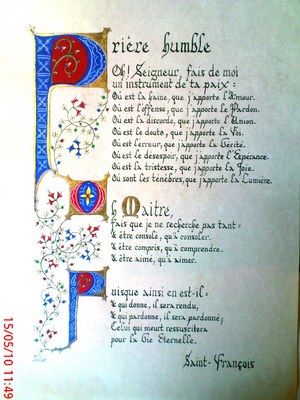 Prière humble
Oh! Seigneur, fais de moi
un instrument de ta paix:
Où est la haine, que j'apporte l'Amour.
Où est l'offense, que j'apporte le Pardon.
Où est la discorde, que j'apporte l'Union.
Où est le doute, que j'apporte la Foi.
Où est l'erreur, que j'apporte la Vérité.
Où est le désespoir, que j'apporte l'Espérance.
Où est la tristesse, que j'apporte la Joie.
Où sont les ténèbres, que j'apporte la Lumière.
Oh Maître,
fais que je ne recherche pas tant:
à être consolé, qu'à consoler.
à être compris, qu'à comprendre.
à être aimé, qu'à aimer.
Puisque ainsi en est-il:
à qui donne, il sera rendu,
à qui pardonne, il sera pardonné;
Celui qui meurt ressuscitera
pour la Vie Eternelle.
Saint-François
15/05/10 11:49